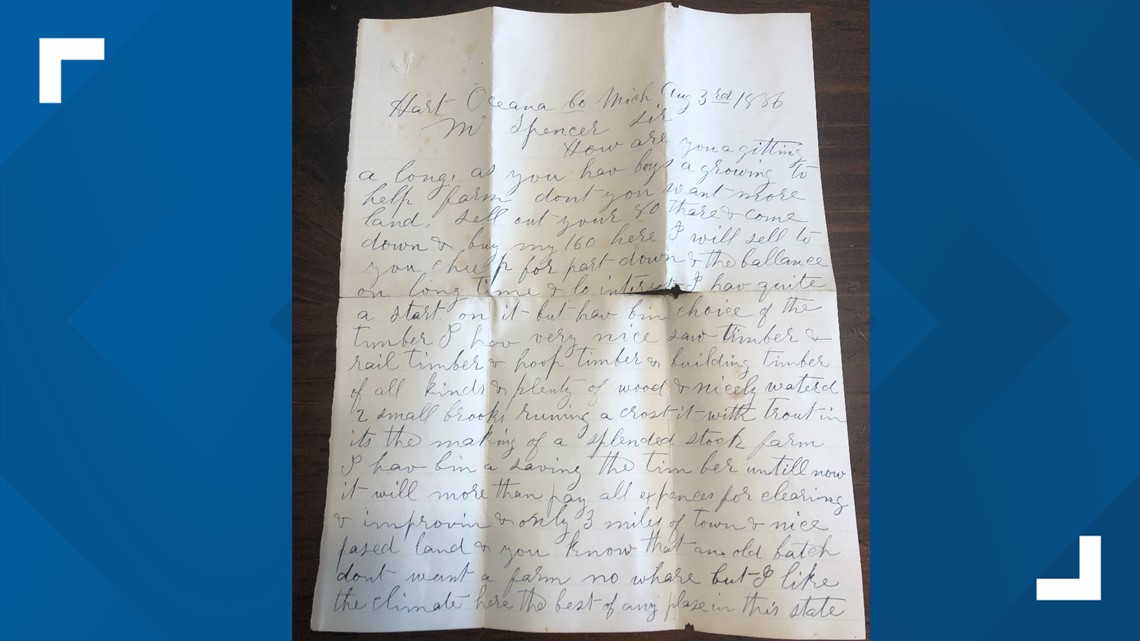 Hart Oceana Co Mich Aug 3rd 1886
Mr Spencer Sir
How are you a gitting
a long, as you hav boys a growing to
help farm dont you want more
land. sell out your 80 thare & come
down & buy my 160 here I will sell to
you cheep for part down & the ballance
on long time & lo interest I hav quite
a start on it but hav bin choice of the
timber I hav very nice saw timber &
rail timber & hoop timber & building timber
of all kinds & plenty of wood & nicely waterd
2 small brooks runing a crost it with trout in
its the making of a splended stock farm
I hav bin a saving the timber untill now
it will more than pay all expences for clearing
& improvin & only 3 miles of town & nice
land & you know that an old batch
dont want a farm no whare but I like
the climate here the best of any plase in this state